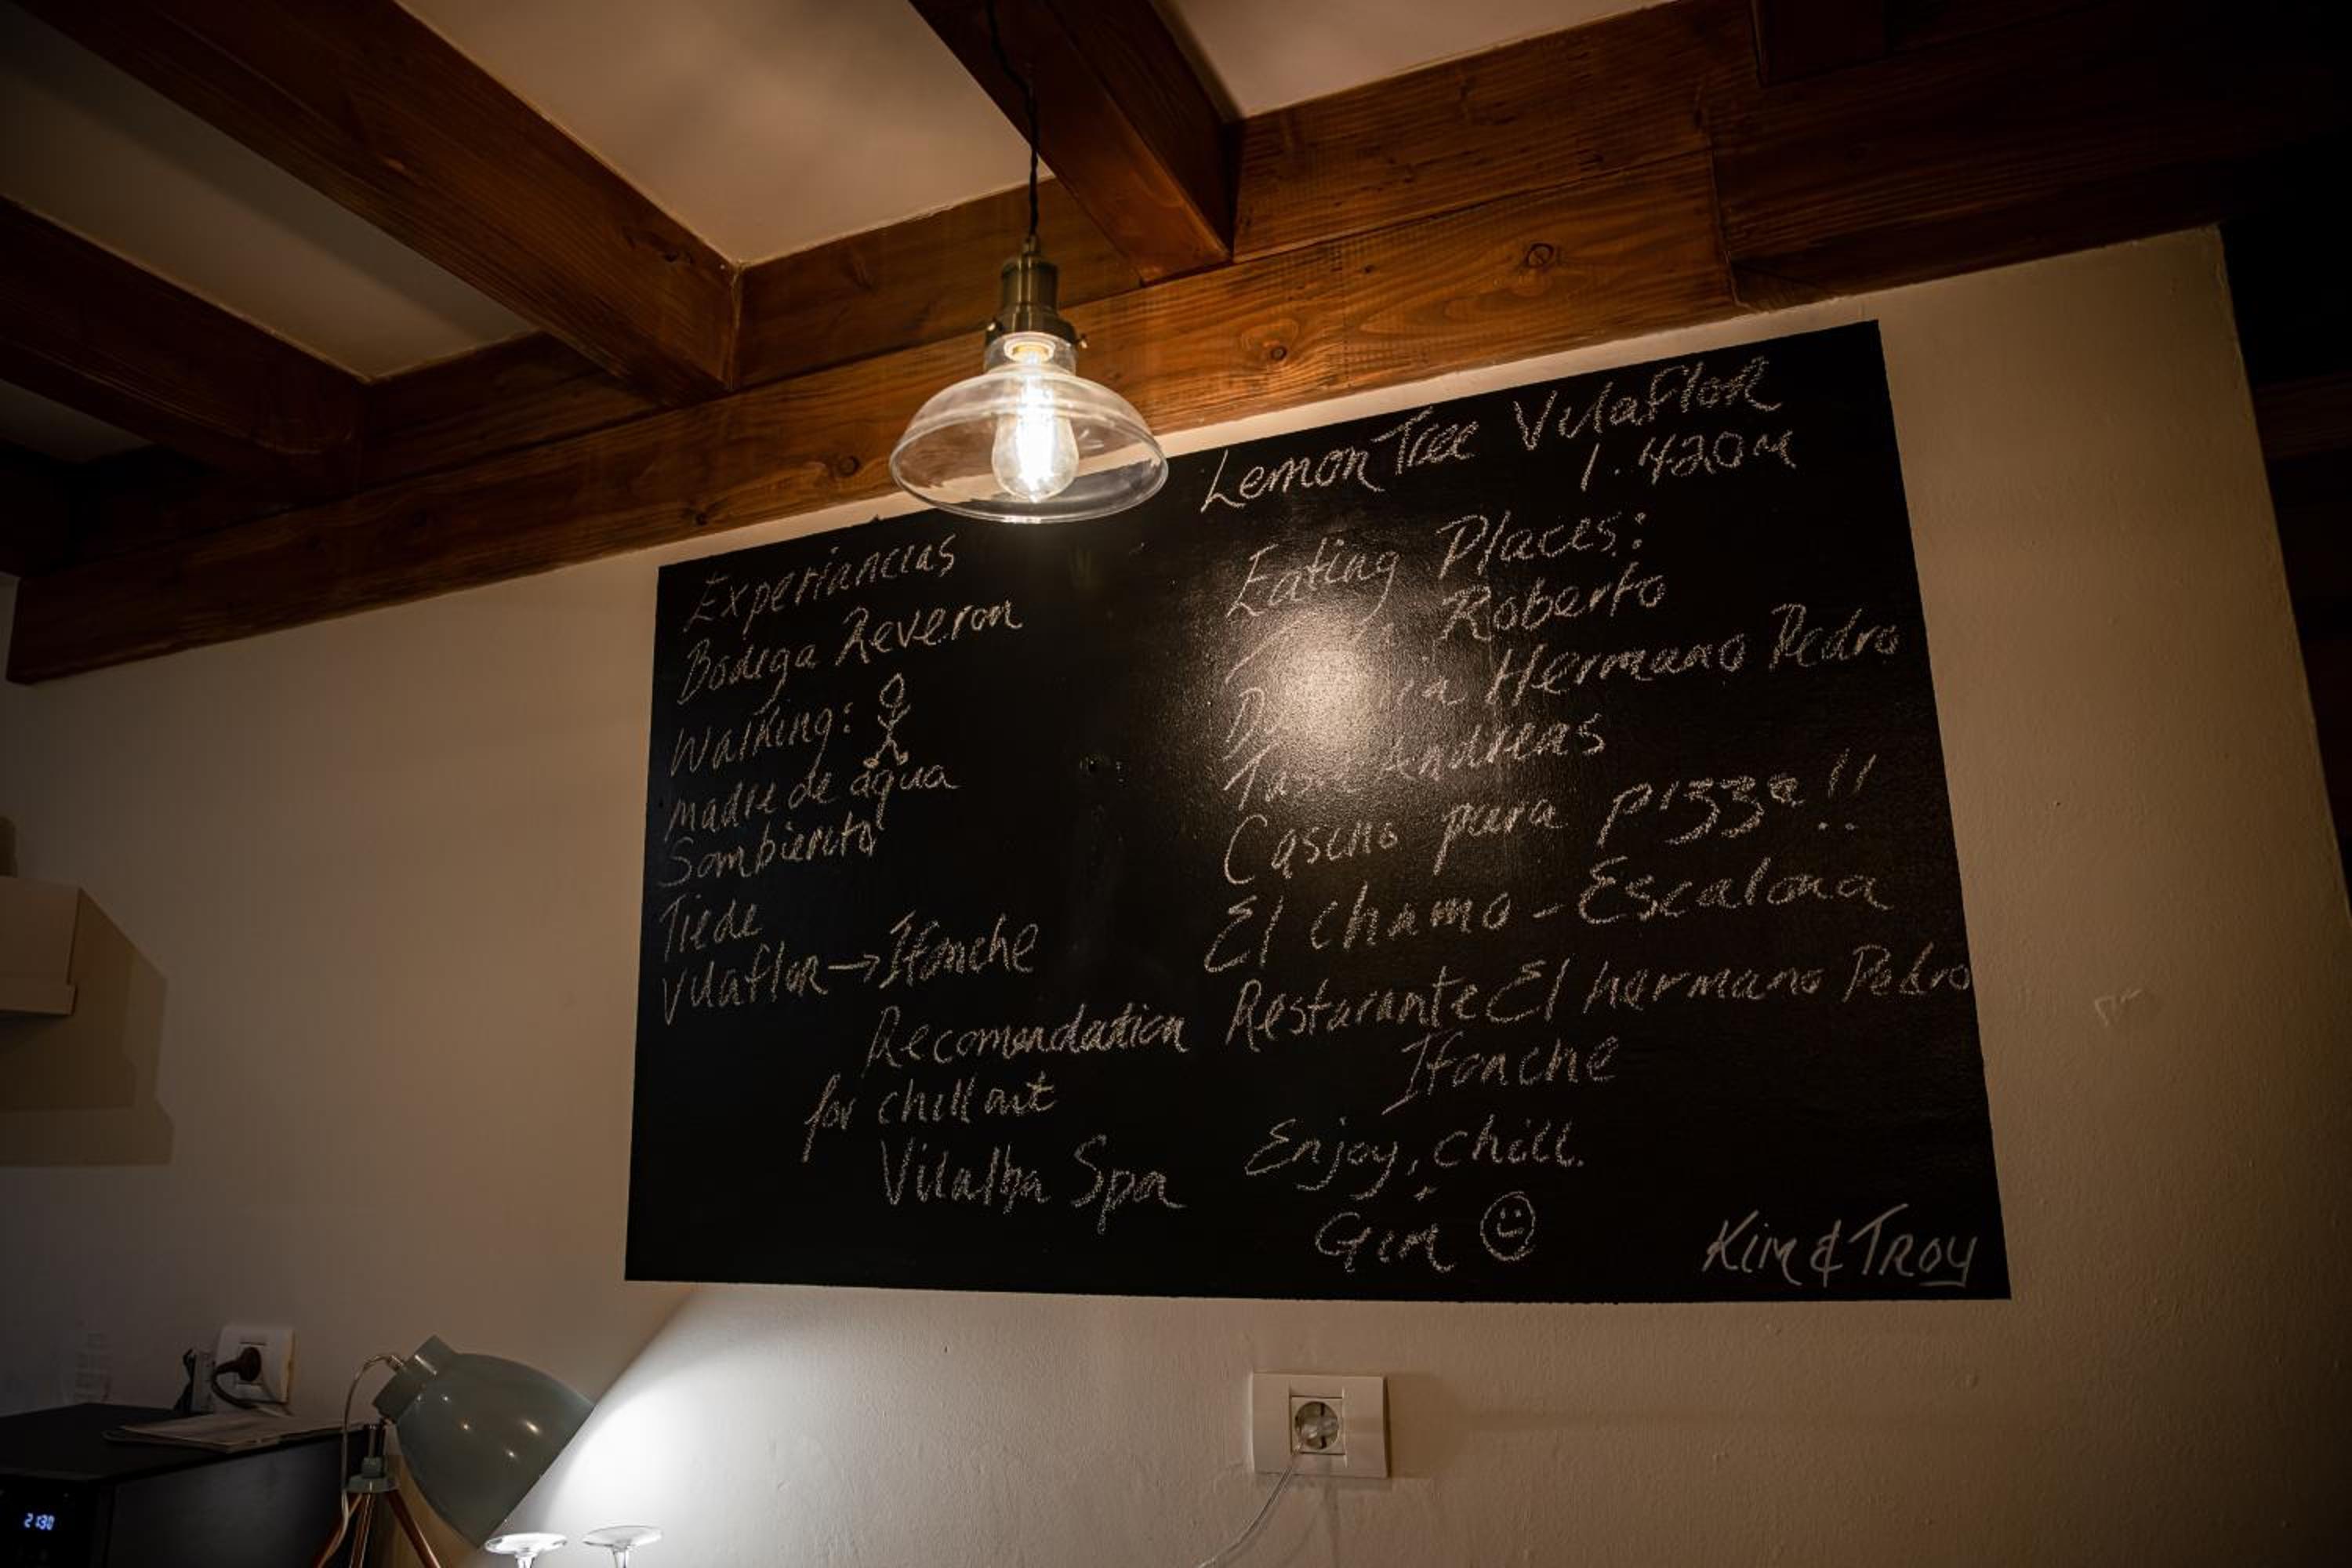 Lemon Tree Vilaflor
1.420m
Experiancias
Bodega Reveron
Walking:
madre de agua
Sombierito
Tiede
Vilaflor → Ifonche
Recomendation
for chill out
Vilalba Spa
Eating Places:
Roberto
Hermano Pedro
Andreas
Casino para pizza!!
El chamo - Escalona
Resturante El hermano Pedro
Ifonche
Enjoy, chill.
+
Gin
Kim & Troy
21:30